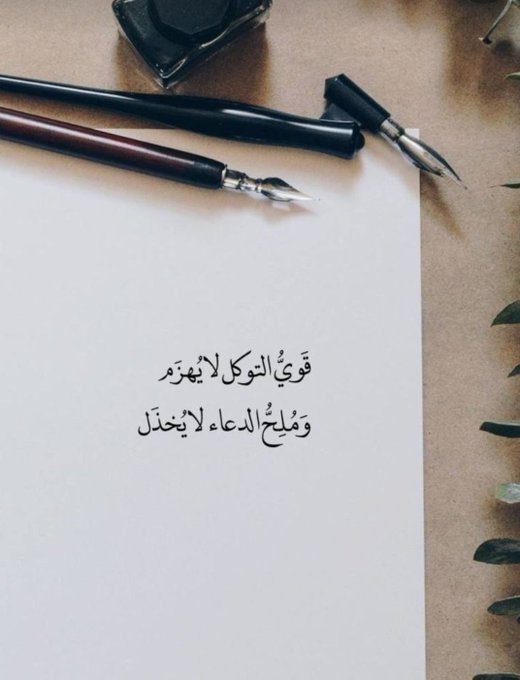 قَويُّ التوكل لا يُهزَم
وَمُلِحُّ الدعاء لا يُخذَل